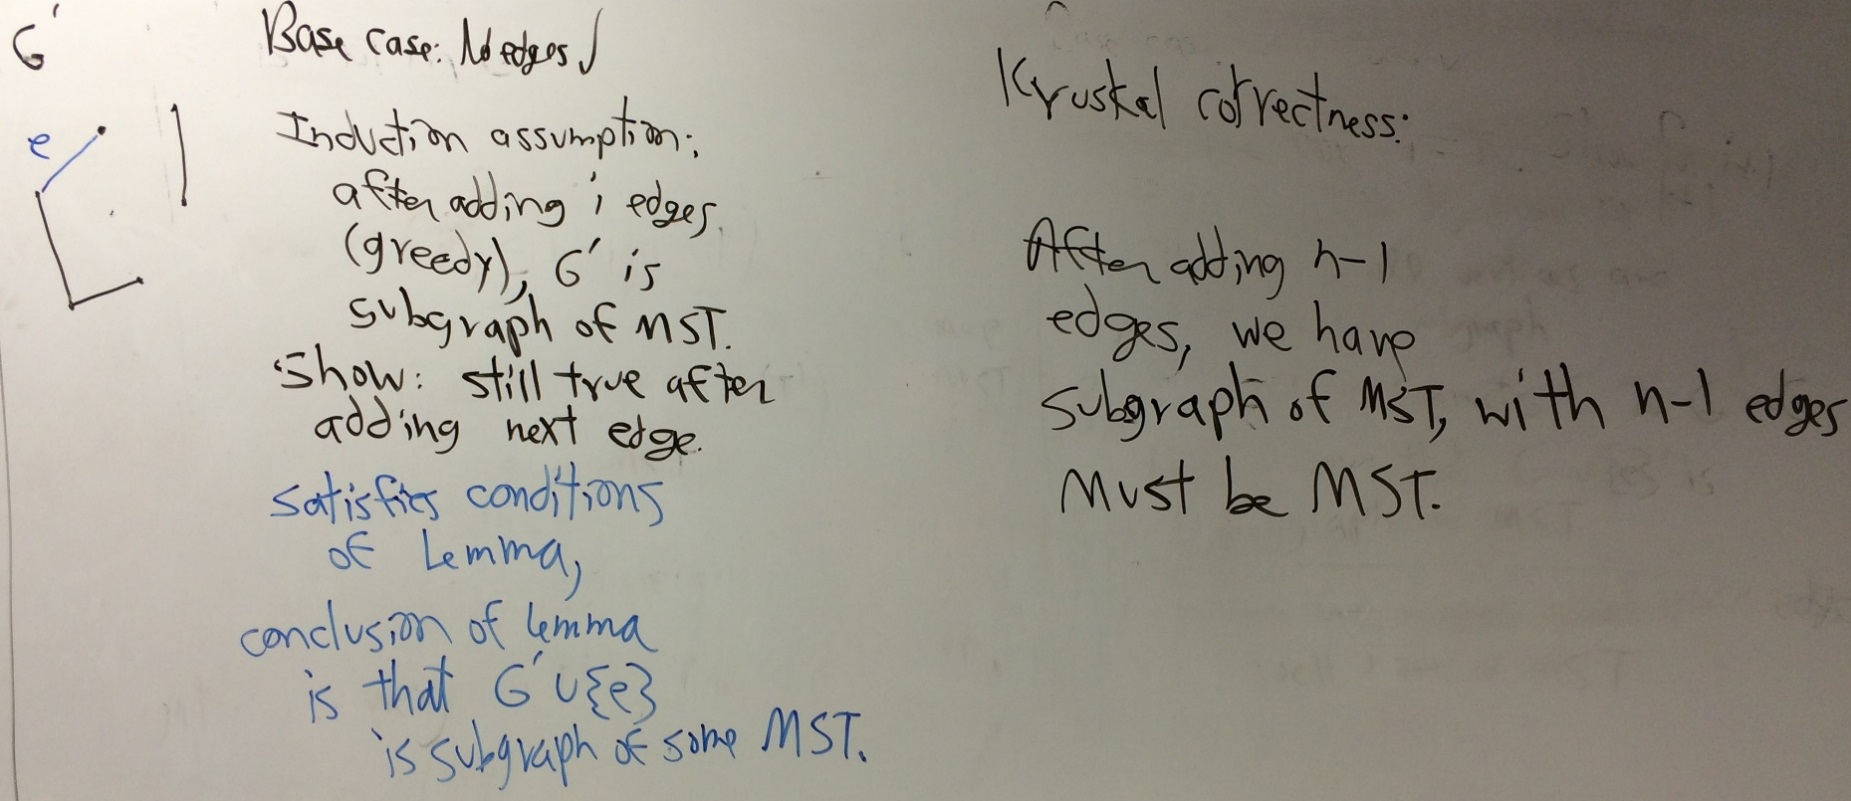 G'
e
Base case: No edges ✓
Induction assumption:
after adding i edges
(greedy), G' is
subgraph of MST.
Show: still true after
adding next edge.
satisfies conditions
of Lemma,
conclusion of Lemma
is that G' ∪ {e}
is subgraph of some MST.
Kruskal correctness:
After adding n-1
edges, we have
subgraph of MST, with n-1 edges
Must be MST.